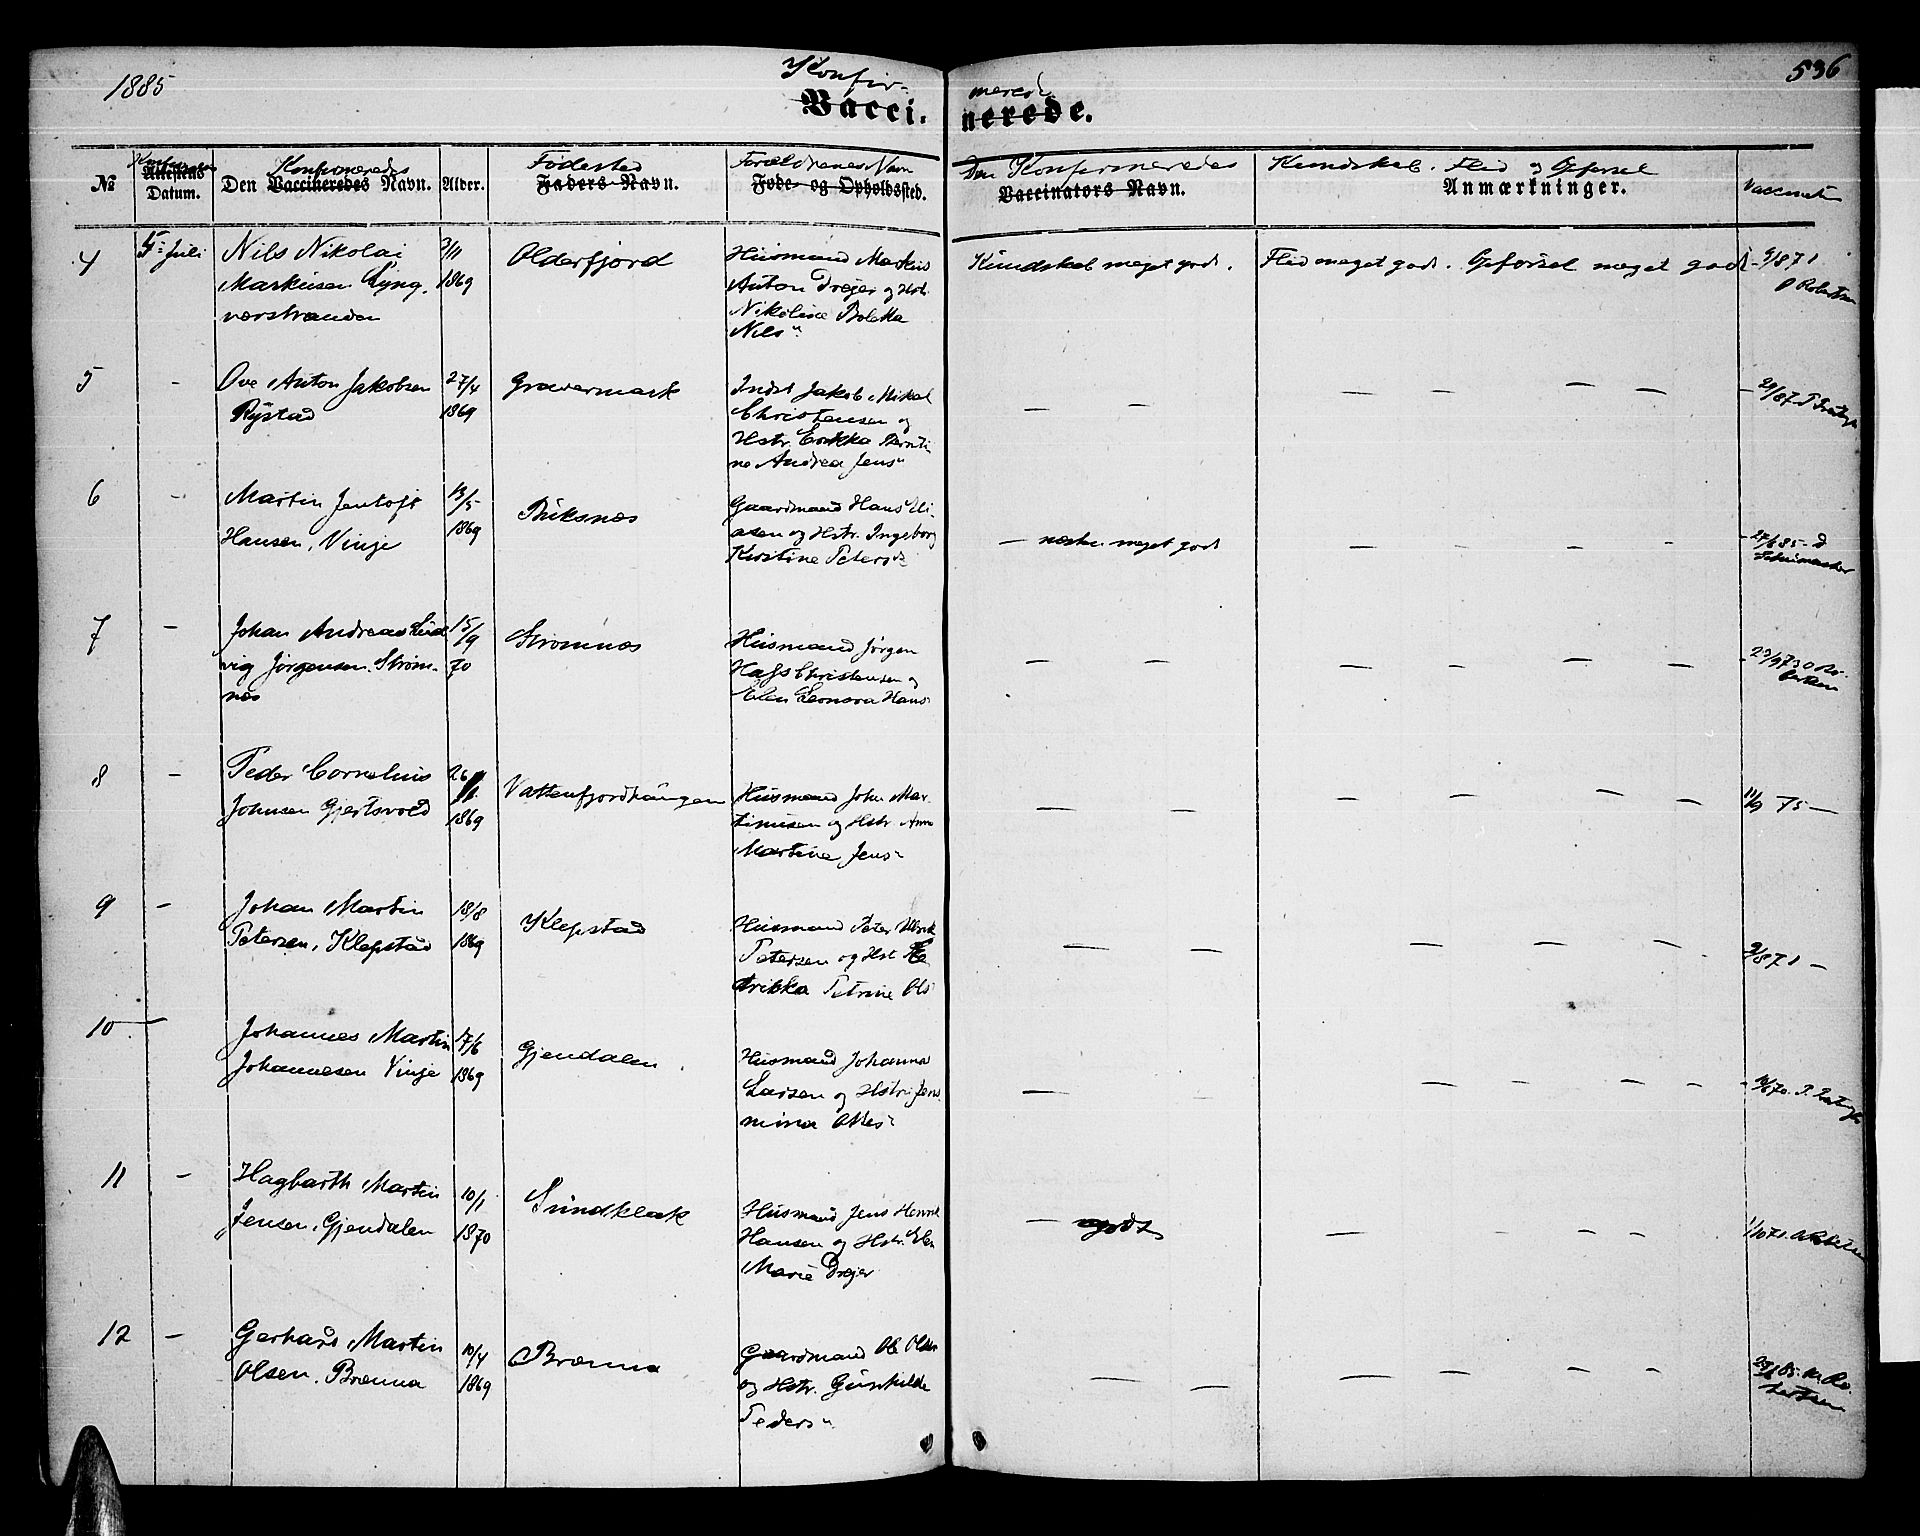 1885
Konfir- merede
Vacci. nerede.
536
№
Attestens Datum.
Konfirmeredes
Den Vaccineredes Navn.
Alder.
Fødested
Faders Navn.
Forældrenes Navn
Føde- og Opholdssted.
Den Konfirmeredes
Vaccinators Navn.
Kundskab. Flid og Opførsel
Anmærkninger.
4
5: Juli
Nils Nikolai
Markusen Lyng.
værstranden
2/11
1869
Olderfjord
Husmand Markus
Anton Drejer og Hst.
Nikoline Boletta
Nils"
Kundskab meget godt. Flid meget godt. Opførsel meget godt
9/8 71
O Robertsen
5
-
Ove Anton Jakobsen
Rystad
27/4
1869
Gravermark
Inds Jakob Mikal
Christensen og
Hstr. Erikka Bernti
ne Andrea Jens"
— — — — — —
6
-
Martin Jentoft
Hansen, Vinje
13/5
1869
Buksnæs
Gaardmand Hans Eli-
asen og Hstr. Ingeborg
Kirstine Peters"
— næsten meget godt — — — —
27/6 85 - d
Schumacher
7
-
Johan Andreas Lud
vig Jørgensen Strøm-
næs
15/9
70
Strømnæs
Husmand Jørgen
Hafs Christensen og
Elen Leonora Hans"
— — — — — —
23/9 73 O Ro-
bertsen
8
-
Peder Cornelius
Johnsen Gjertsvold
26
1869
Vattenfjordkangen
Husmand John Mar-
tinusen og Hstr. Anne
Martine Jens"
— — — — — —
11/9 75 —
9
-
Johan Martin
Petersen, Klepstad
18/8
1869
Klepstad
Husmand Peter Ulrik
Petersen og Hst
drikka Petrine Ols"
— — — — — —
9/8 71 —
10
—
Johannes Martin
Johannesen Vinje
17/6
1869
Gjendalen
Husmand Johannes
Larsen og Hstr. Jens
mina Ottes"
— — — — — —
11
-
Hagbarth Martin
Jensen, Gjendalen
10/1
1870
Sundklak
Husmand Jens Henrik
Hansen og Hstr. Elen
Marie Drejer
— godt — — — —
12
-
Gerhard Martin
Olsen, Brenna
10/4
1869
Brenna
Gaardmand Ole Olsen
og Hstr. Gunhilde
Peders"
— — — — — —
23/6 85. M. Ro-
bertsen